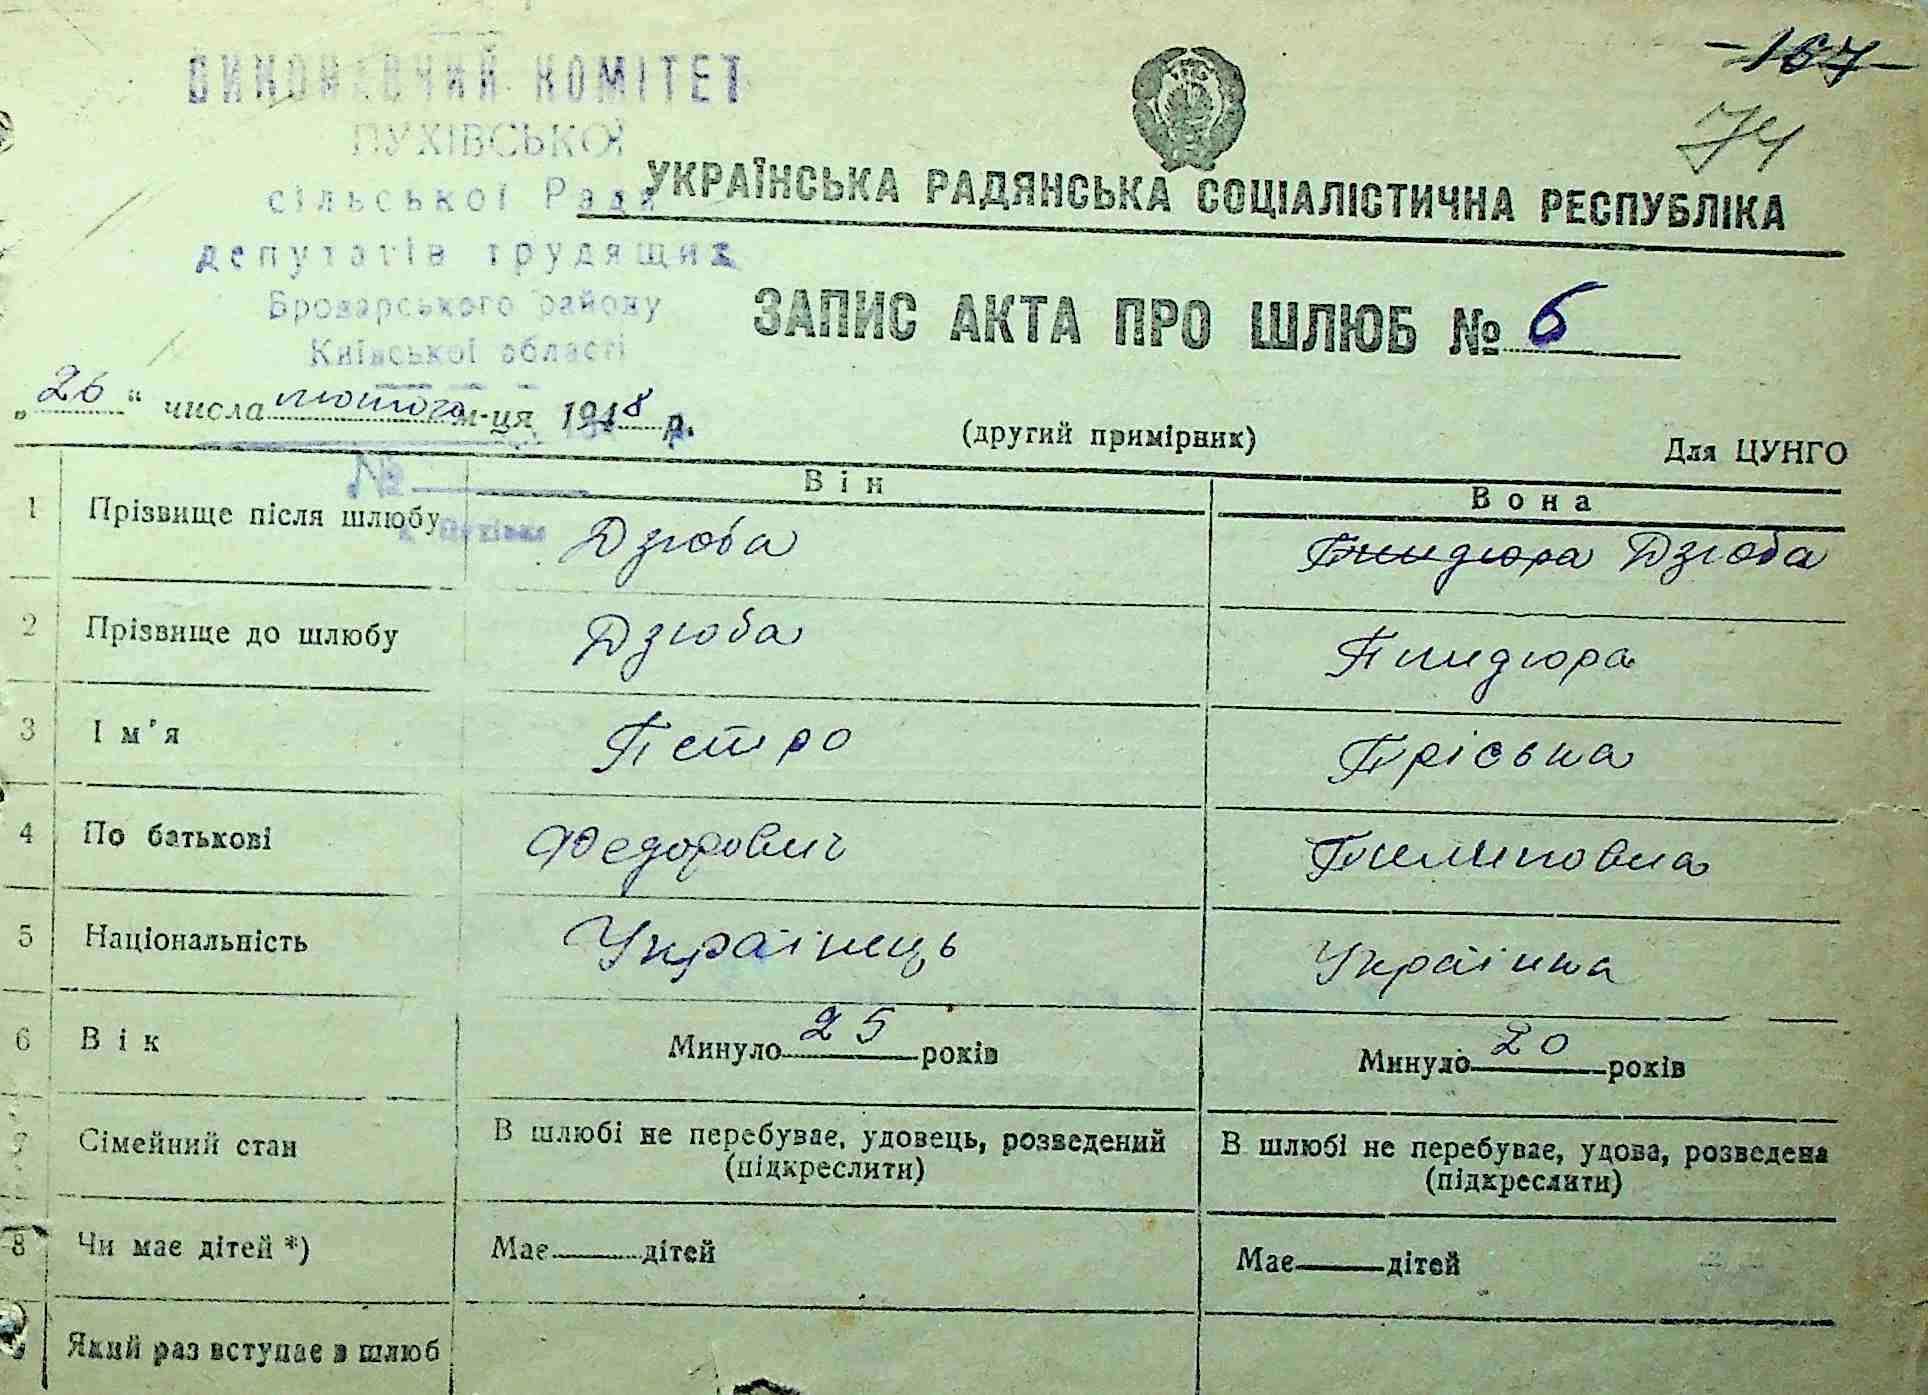 -167-
74
ВИКОНАВЧИЙ КОМІТЕТ
ПУХІВСЬКОЇ
сільської Ради
депутатів трудящих
Броварського району
Київської області
УКРАЇНСЬКА РАДЯНСЬКА СОЦІАЛІСТИЧНА РЕСПУБЛІКА
ЗАПИС АКТА ПРО ШЛЮБ № 6
„26“ числа лютого м-ця 1948 р.
(другий примірник)
Для ЦУНГО
№
Він Вона
1 Прізвище після шлюбу Дзюба Пиндюра Дзюба
2 Прізвище до шлюбу Дзюба Пиндюра
3 Ім'я Петро Пріська
4 По батькові Федорович Пилиповна
5 Національність Українець Українка
6 Вік Минуло 25 років Минуло 20 років
7 Сімейний стан В шлюбі не перебуває, удовець, розведений В шлюбі не перебуває, удова, розведена
(підкреслити) (підкреслити)
8 Чи має дітей *) Має дітей Має дітей
Який раз вступає в шлюб